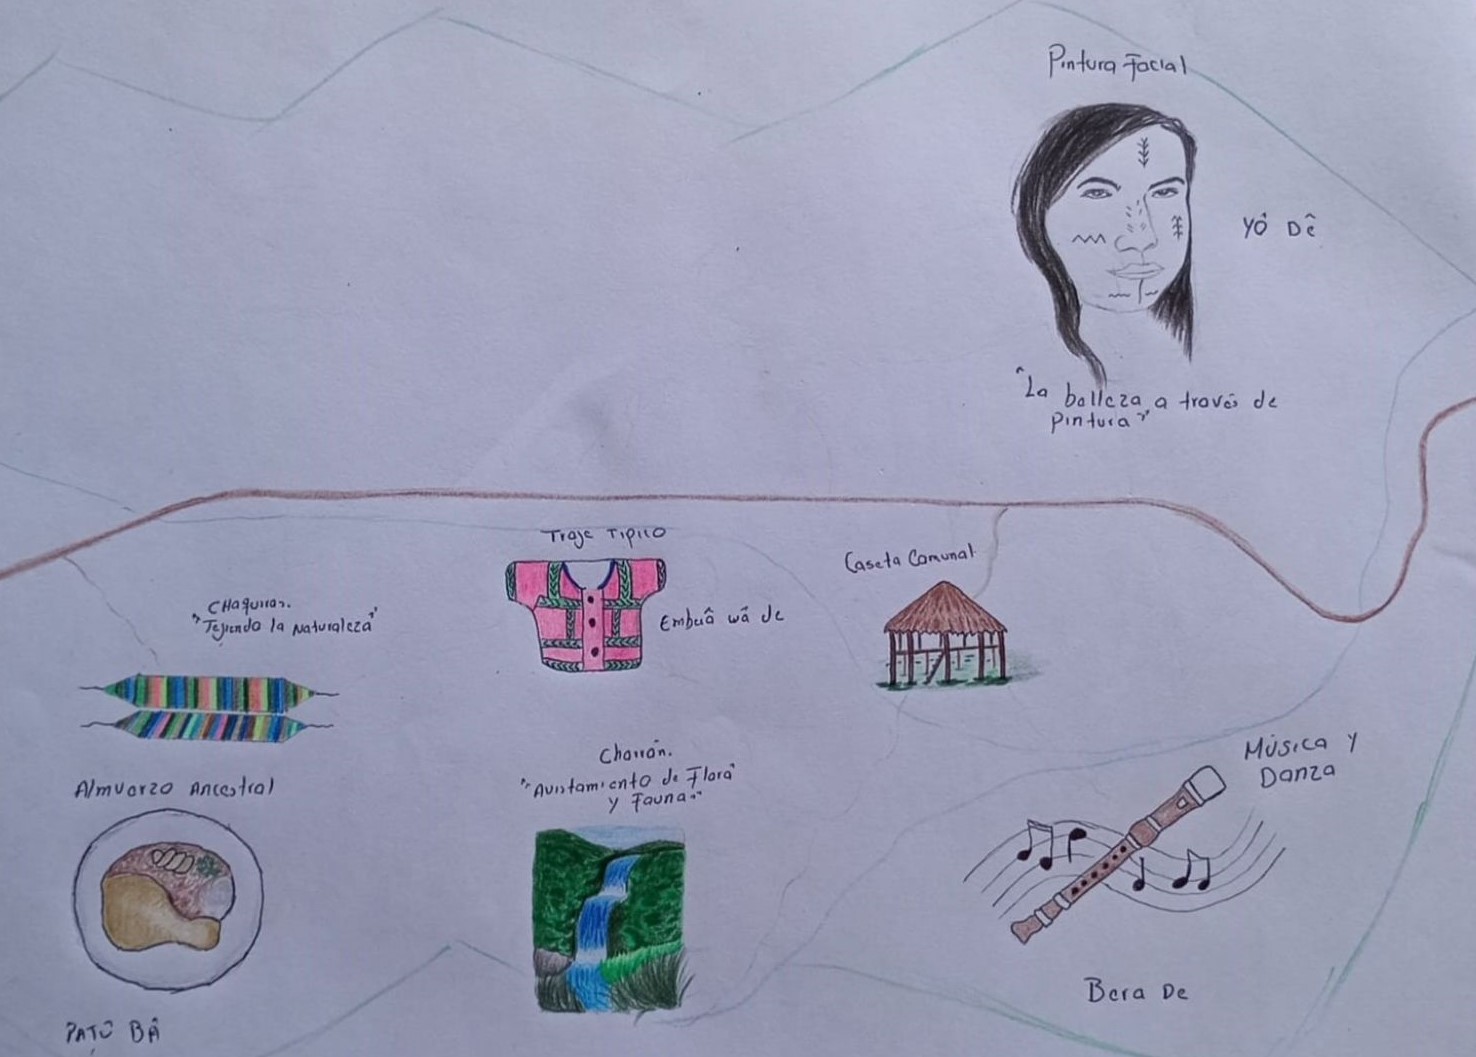 Pintura Facial
YÓ DÊ
"La balleza a través de
Pintura"
Traje Tipico
Embuâ wã de
Caseta Comunal
CHaquiras.
"Tejiendo la Naturaleza"
Almuerzo Ancestral
PATÛ BÂ
Chorrón.
"Avistamiento de Flora
y Fauna."
Música y
Danza
Bera De